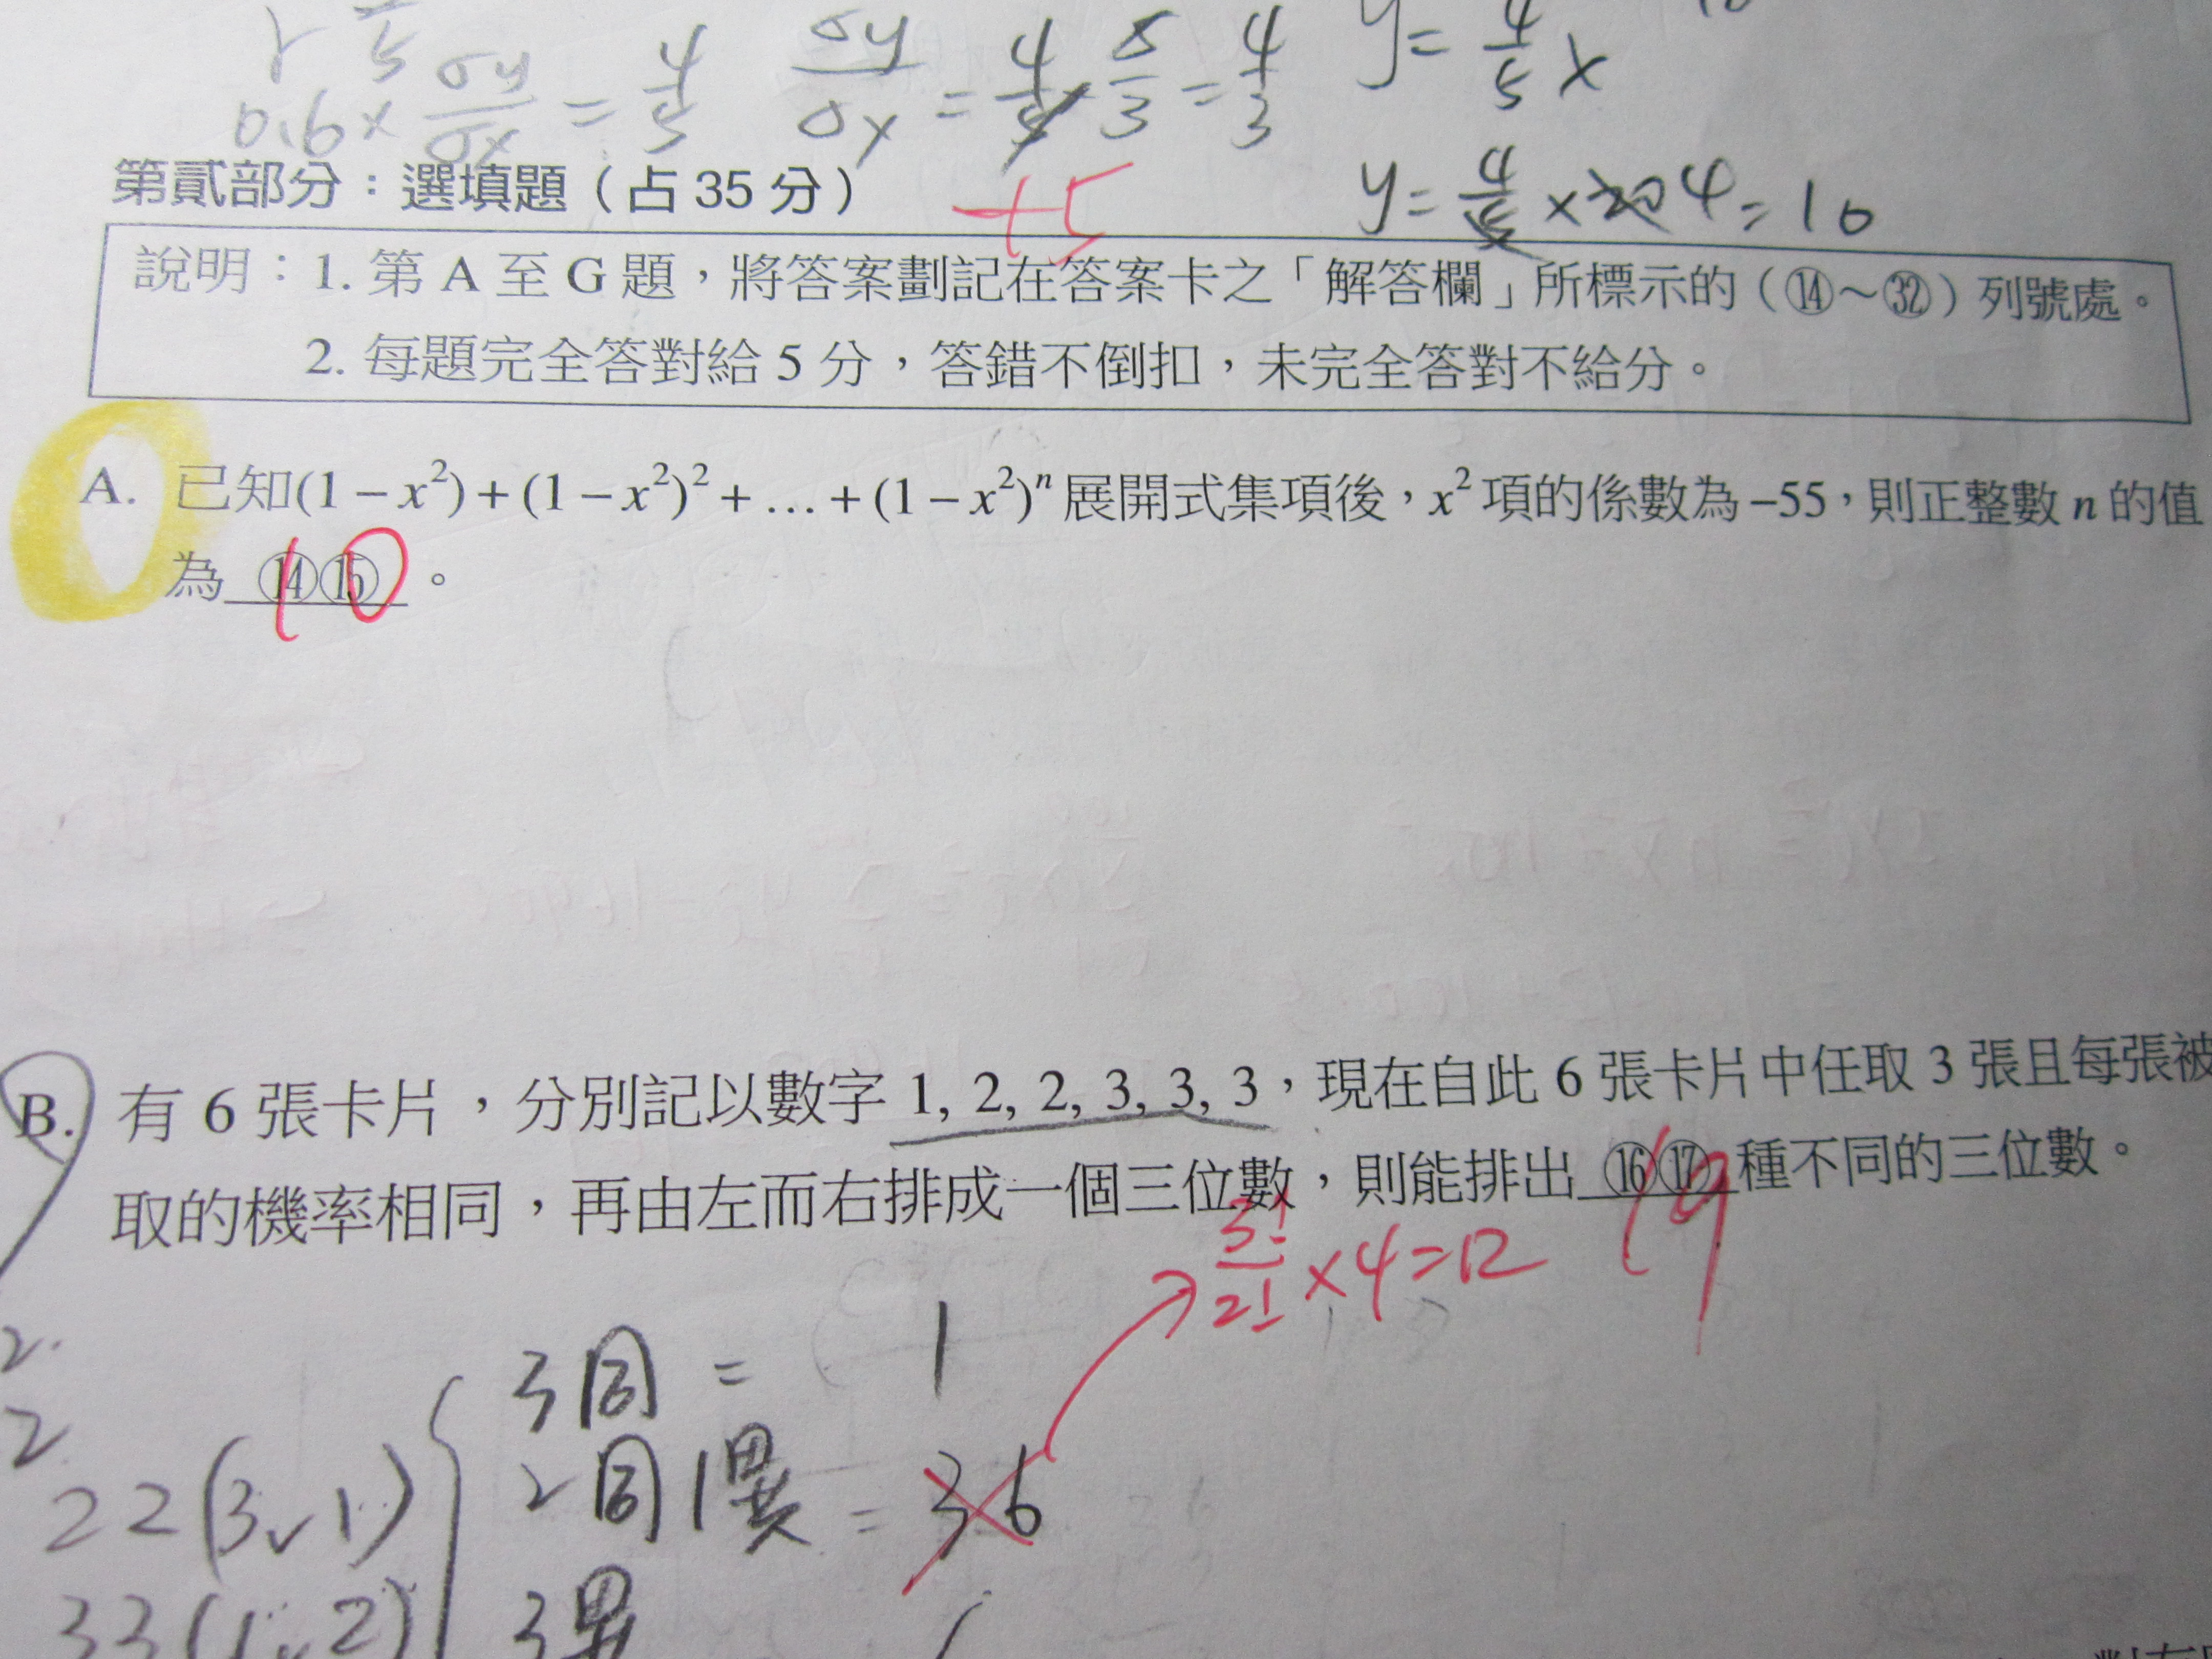 0.6 × σy/σx = 4/5
σy/σx = 4/5 · 5/3 = 4/3
y = 4/5 x
第貳部分：選填題（占 35 分）
+5
y = 4/5 × 20 4 = 10
說明：1. 第 A 至 G 題，將答案劃記在答案卡之「解答欄」所標示的（⑭～㉜）列號處。
2. 每題完全答對給 5 分，答錯不倒扣，未完全答對不給分。
A. 已知(1 − x²) + (1 − x²)² + … + (1 − x²)ⁿ 展開式集項後，x² 項的係數為 −55，則正整數 n 的值
為 ⑭⑮ 。
10
B. 有 6 張卡片，分別記以數字 1, 2, 2, 3, 3, 3，現在自此 6 張卡片中任取 3 張且每張被
取的機率相同，再由左而右排成一個三位數，則能排出 ⑯⑰ 種不同的三位數。
19
3!/2! × 4 = 12
3同 = 1
2
2
22(3,1)
2同1異 = 36
33(1,2)
3異